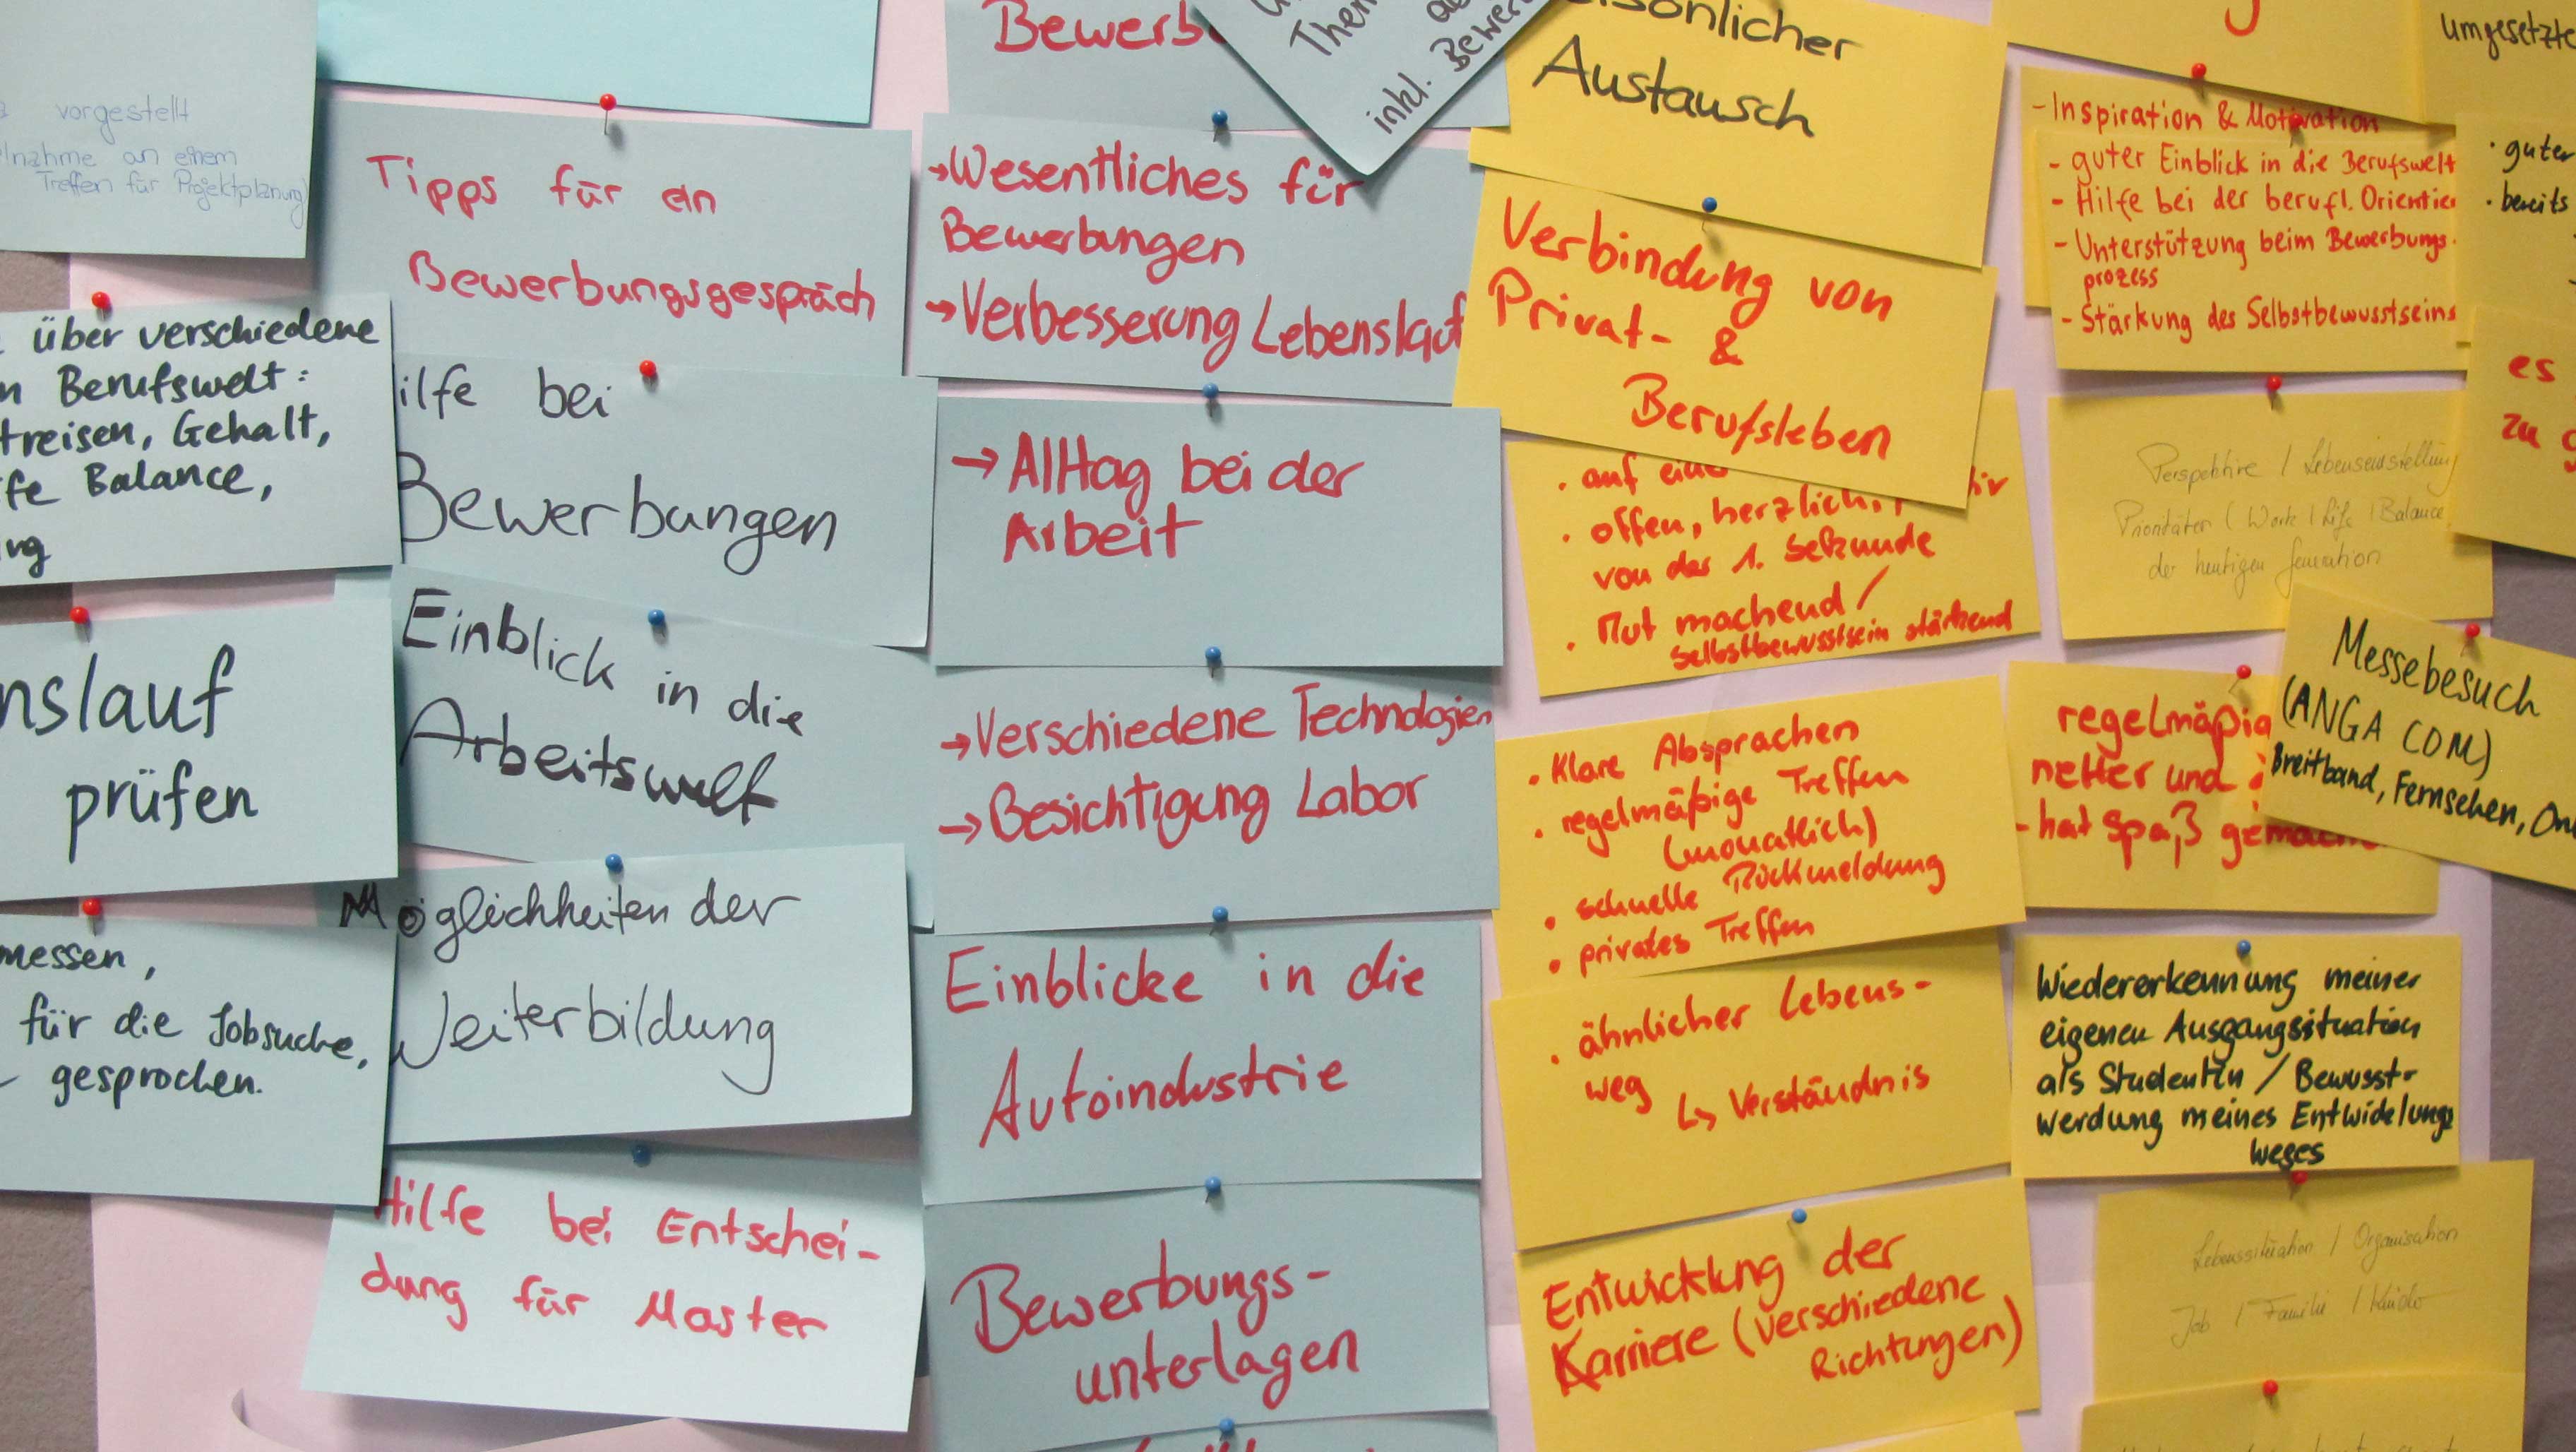 vorgestellt
an einem
Treffen für Projektplanung)
über verschiedene
Berufswelt:
Gehalt,
Balance,
nslauf
prüfen
messen,
für die Jobsuche,
gesprochen.
Tipps für ein
Bewerbungsgespräch
ilfe bei
Bewerbungen
Einblick in die
Arbeitswelt
Möglichkeiten der
Weiterbildung
Hilfe bei Entschei-
dung für Master
Bewerb
inkl. Bewer
→Wesentliches für
Bewerbungen
→Verbesserung Lebenslauf
→ Alltag bei der
Arbeit
→Verschiedene Technologien
→Besichtigung Labor
Einblicke in die
Autoindustrie
Bewerbungs-
unterlagen
sönlicher
Austausch
Verbindung von
Privat- &
Berufsleben
· auf
· offen, herzlich,
von der 1. Sekunde
· Mut machend/
selbstbewusstsein stärkend
· Klare Absprachen
· regelmäßige Treffen
(monatlich)
· schnelle Rückmeldung
· privates Treffen
· ähnlicher Lebens-
weg
↳ Verständnis
Entwicklung der
Karriere (verschiedene
Richtungen)
-Inspiration & Motivation
- guter Einblick in die Berufswelt
- Hilfe bei der berufl. Orientie
- Unterstützung beim Bewerbungs-
prozess
- Stärkung des Selbstbewusstseins
Perspektive / Lebenseinstellung
Prioritäten (Work / Life / Balance
der heutigen Generation
regelmäßig
netter und
- hat Spaß gemacht
Messebesuch
(ANGA COM)
Breitband, Fernsehen, On
Wiedererkennung meiner
eigenen Ausgangssituation
als Studentin / Bewusst-
werdung meines Entwicklungs
weges
Lebenssituation / Organisation
Job / Familie / Kinder
umgesetzte
· guter
· bereits
es
zu